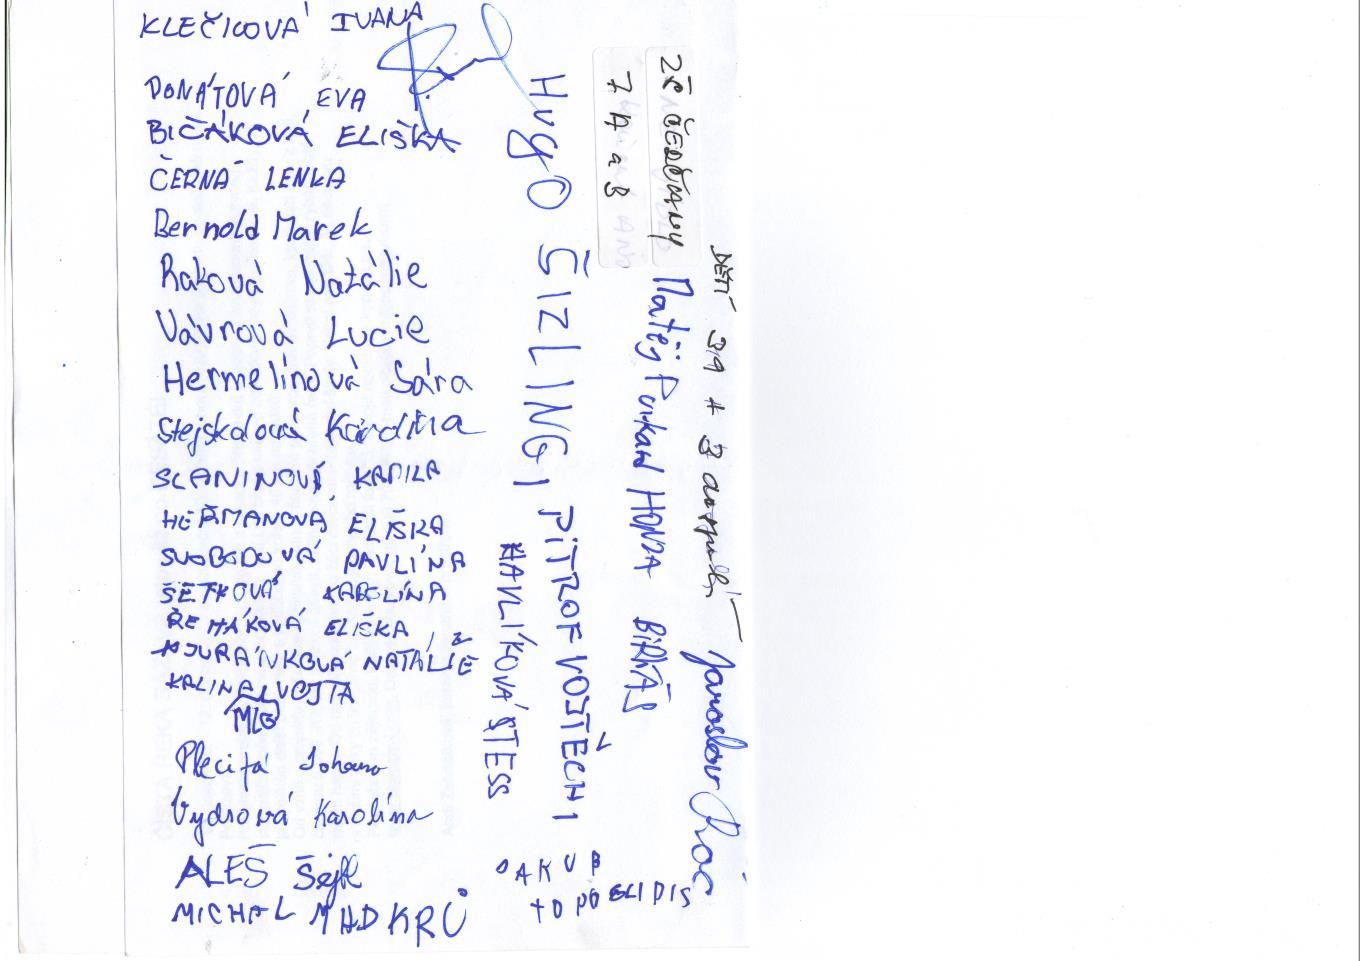 KLEČKOVÁ IVANA
DONÁTOVÁ EVA
BIČÁKOVÁ ELIŠKA
ČERNÁ LENKA
Bernold Marek
Raková Natálie
Vávrová Lucie
Hermelínová Sára
Stejskalová Karolína
SLANINOVÁ KAMILA
HEŘMANOVÁ ELIŠKA
SVOBODOVÁ PAVLÍNA
ŠETKOVÁ KAROLÍNA
ŘEHÁKOVÁ ELIŠKA
JURÁNKOVÁ NATÁLIE
KALINA VOJTA
Plecitá Johana
Vydrová Karolína
ALEŠ Šejk
MICHAL
HAVLÍKOVÁ TESS
HugO ŠIZLING,
PITROF VOJTĚCH
JAKUB
TOPOGLIDIS
7 A a B
ZŠ ČERČANY
Matěj HONZA
DĚTÍ 39 + 3
Jaroslav